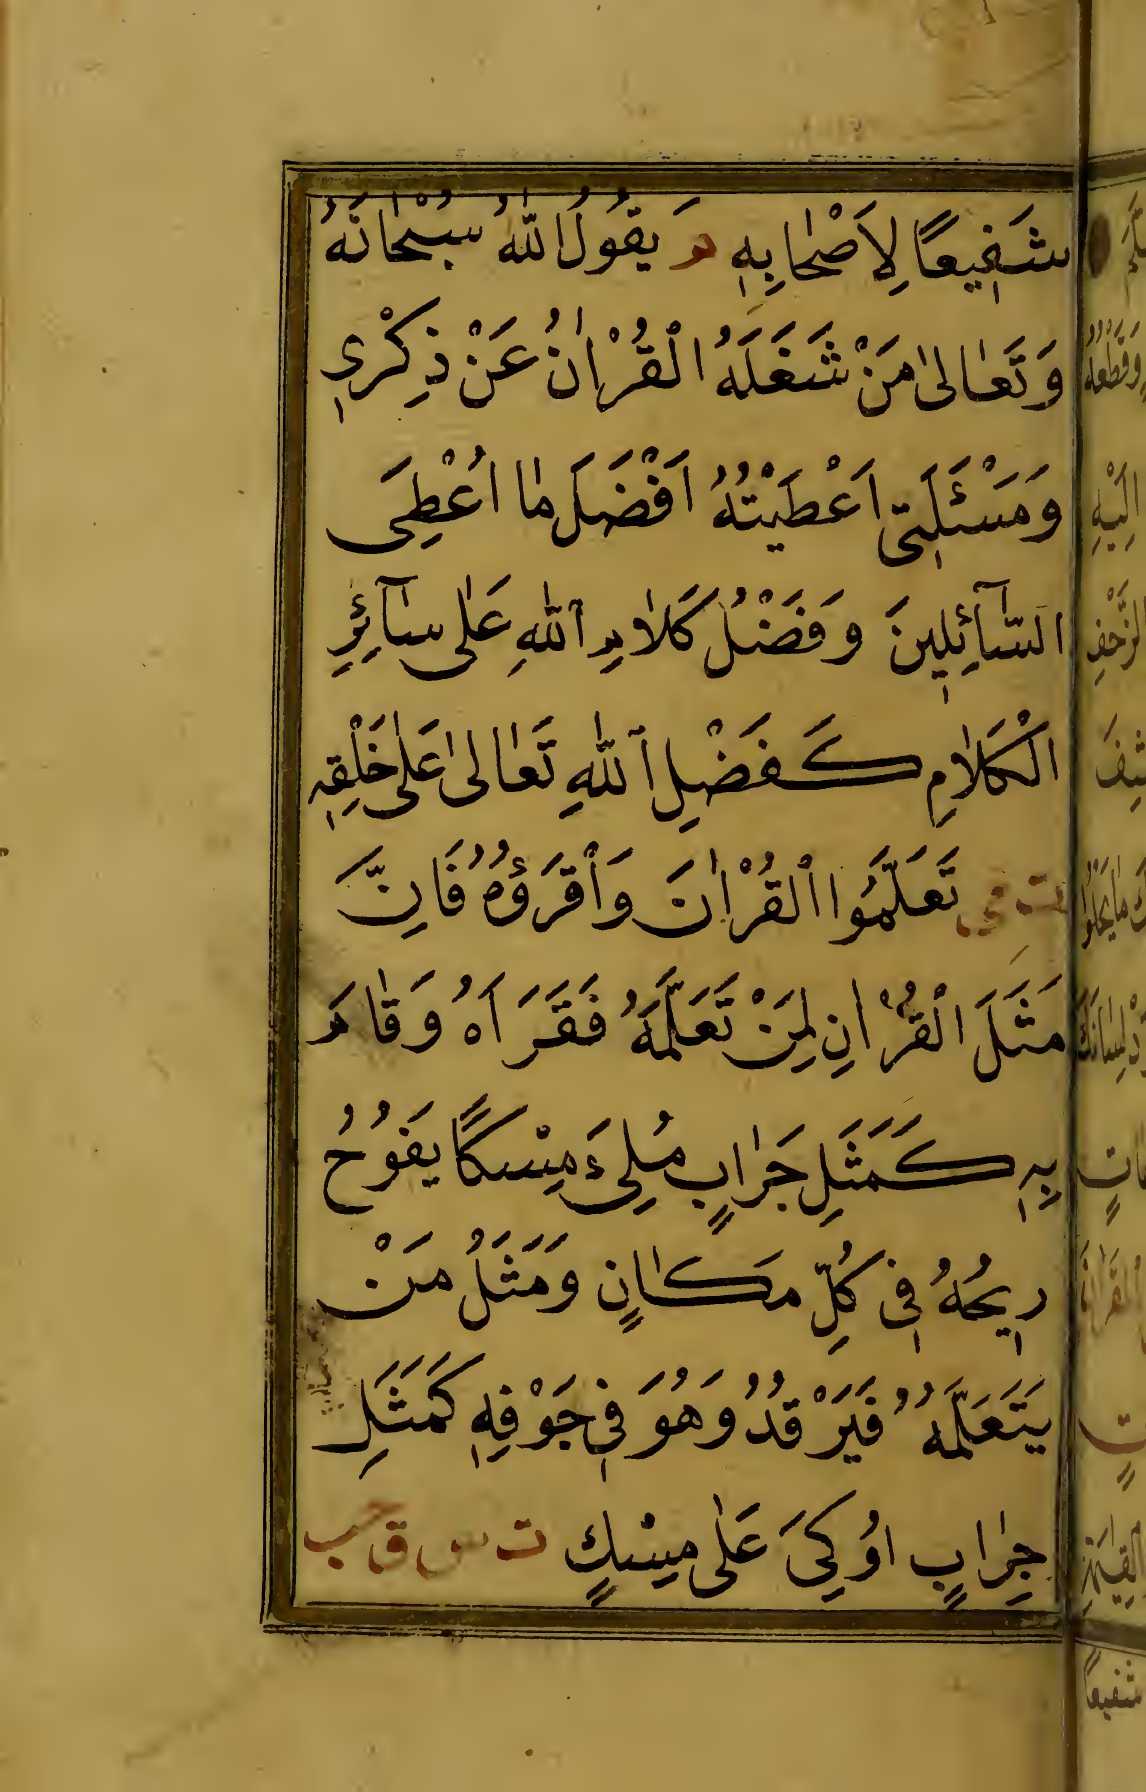 شَفِيعًا لِاَصْحَابِهِ م يَقُولُ اللّٰهُ سُبْحَانَهُ
وَتَعَالٰى مَنْ شَغَلَهُ الْقُرْاٰنُ عَنْ ذِكْرِي
وَمَسْئَلَتِى اَعْطَيْتُهُ اَفْضَلَ مَا اُعْطِىَ
السَّآئِلِينَ وَفَضْلُ كَلَامِ اللّٰهِ عَلٰى سَآئِرِ
الْكَلَامِ كَفَضْلِ اللّٰهِ تَعَالٰى عَلٰى خَلْقِهِ
ت مى تَعَلَّمُوا الْقُرْاٰنَ وَاقْرَؤُهُ فَاِنَّ
مَثَلَ الْقُرْاٰنِ لِمَنْ تَعَلَّمَهُ فَقَرَاَهُ وَقَامَ
بِهِ كَمَثَلِ جَرَابٍ مُلِىءَ مِسْكًا يَفُوحُ
رِيحُهُ فِى كُلِّ مَكَانٍ وَمَثَلُ مَنْ
يَتَعَلَّمُهُ فَيَرْقُدُ وَهُوَ فِى جَوْفِهِ كَمَثَلِ
جِرَابٍ اُوكِىَ عَلٰى مِسْكٍ ت س ق حب
وَقَطَعَهُ
اِلَيْهِ
الْقُرْاٰنَ
الْقِيٰمَةِ
شفيعًا